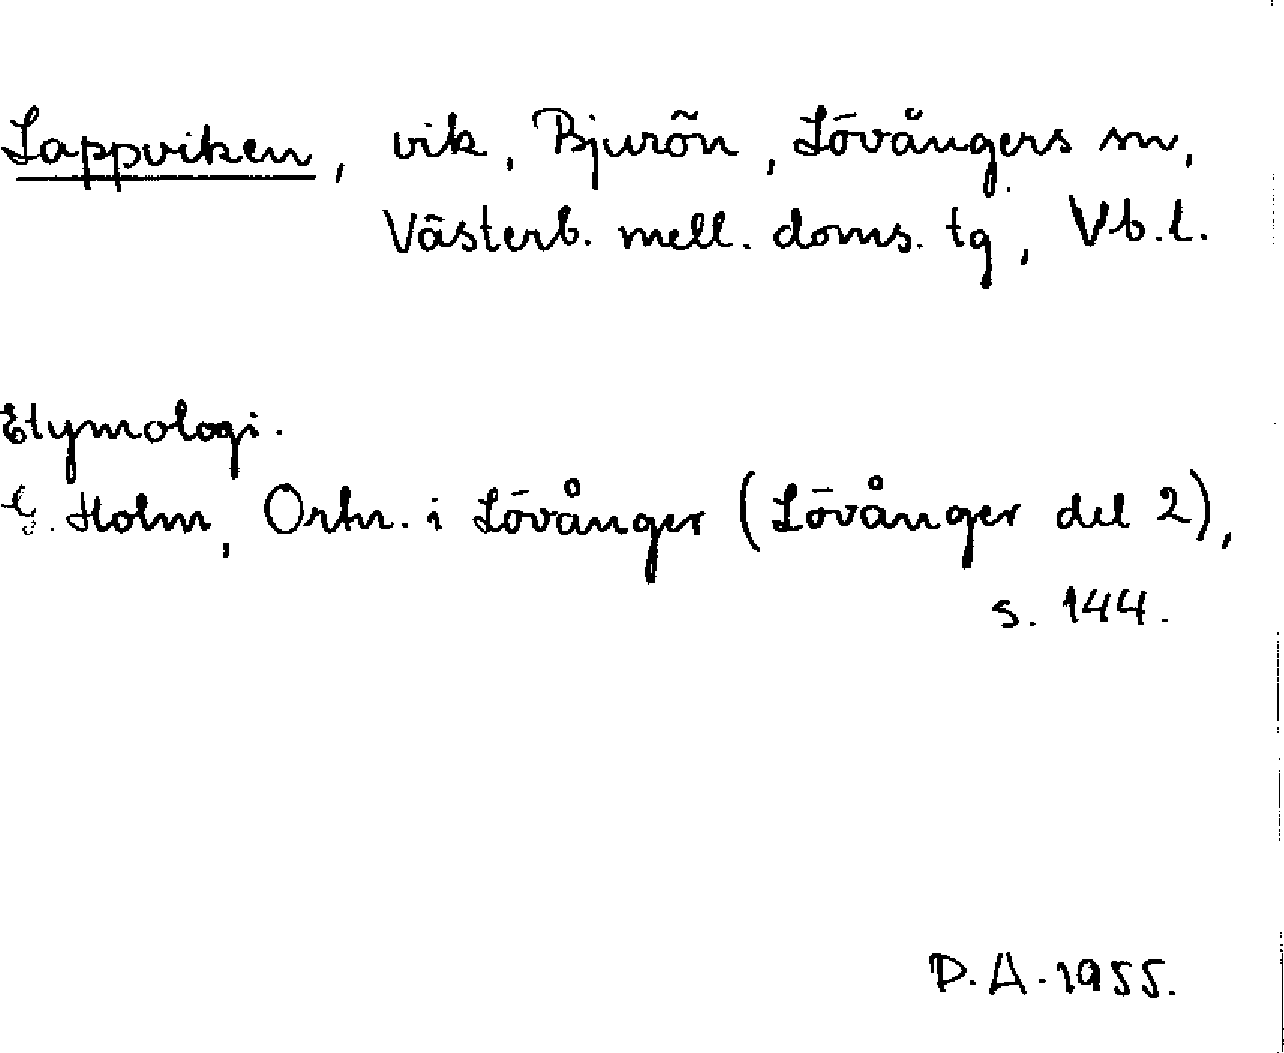 Lappviken, vik, Bjurön, Lövångers sn,
Västerb. mell. doms. tg, Vb.l.
Etymologi.
G. Holm, Ortn. i Lövånger (Lövånger del 2),
s. 144.
D.A. 1955.